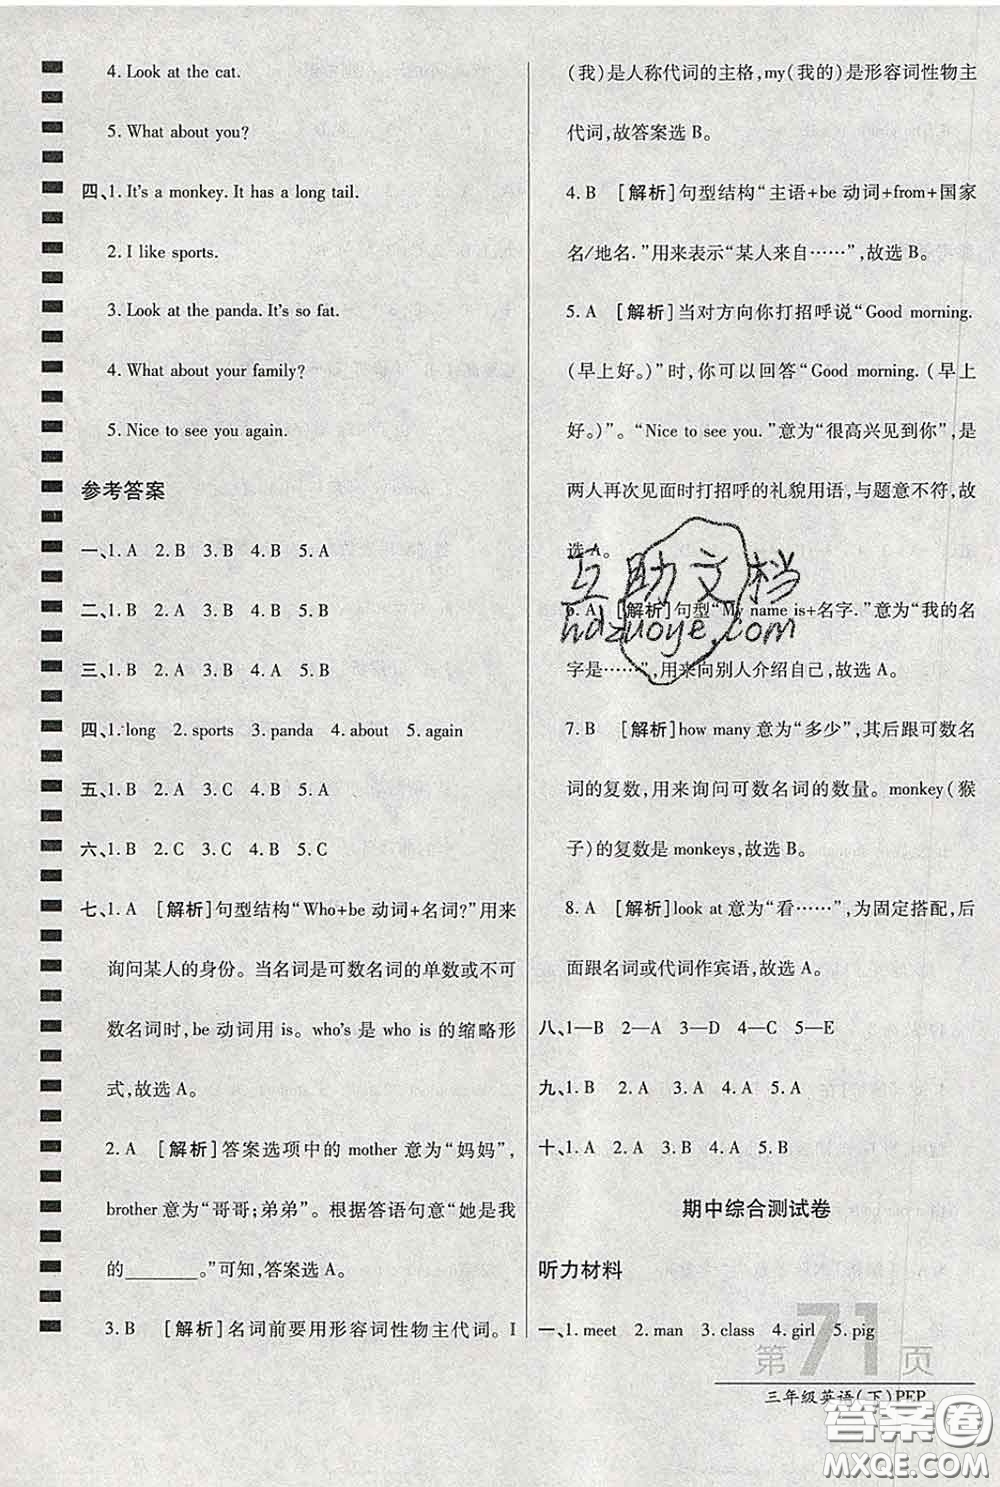 4. Look at the cat.
5. What about you?
四、1. It's a monkey. It has a long tail.
2. I like sports.
3. Look at the panda. It's so fat.
4. What about your family?
5. Nice to see you again.
参考答案
一、1. A 2. B 3. B 4. B 5. A
二、1. B 2. A 3. B 4. B 5. A
三、1. B 2. A 3. A 4. B 5. A
四、1. long 2. sports 3. panda 4. about 5. again
五、1. B 2. A 3. C 4. B 5. A
六、1. B 2. C 3. C 4. B 5. C
七、1. A [解析]句型结构“Who+be 动词+名词?”用来
询问某人的身份。当名词是可数名词的单数或不可
数名词时,be 动词用 is。who's 是 who is 的缩略形
式,故选 A。
2. A [解析]答案选项中的 mother 意为“妈妈”,
brother 意为“哥哥;弟弟”。根据答语句意“她是我
的________。”可知,答案选 A。
3. B [解析]名词前要用形容词性物主代词。I
(我)是人称代词的主格,my(我的)是形容词性物主
代词,故答案选 B。
4. B [解析]句型结构“主语+be 动词+from+国家
名/地名.”用来表示“某人来自……”,故选 B。
5. A [解析]当对方向你打招呼说“Good morning.
(早上好。)”时,你可以回答“Good morning. (早上
好。)”。“Nice to see you.”意为“很高兴见到你”,是
两人再次见面时打招呼的礼貌用语,与题意不符,故
选 A。
6. A [解析]句型“My name is+名字.”意为“我的名
字是……”,用来向别人介绍自己,故选 A。
7. B [解析]how many 意为“多少”,其后跟可数名
词的复数,用来询问可数名词的数量。monkey(猴
子)的复数是 monkeys,故选 B。
8. A [解析]look at 意为“看……”,为固定搭配,后
面跟名词或代词作宾语,故选 A。
八、1—B 2—A 3—D 4—C 5—E
九、1. B 2. A 3. A 4. A 5. A
十、1. A 2. A 3. B 4. A 5. B
期中综合测试卷
听力材料
一、1. meet 2. man 3. class 4. girl 5. pig
第71页
三年级英语(下)PEP
互助文档
hdzuoye.com
答案圈
MXQE.COM